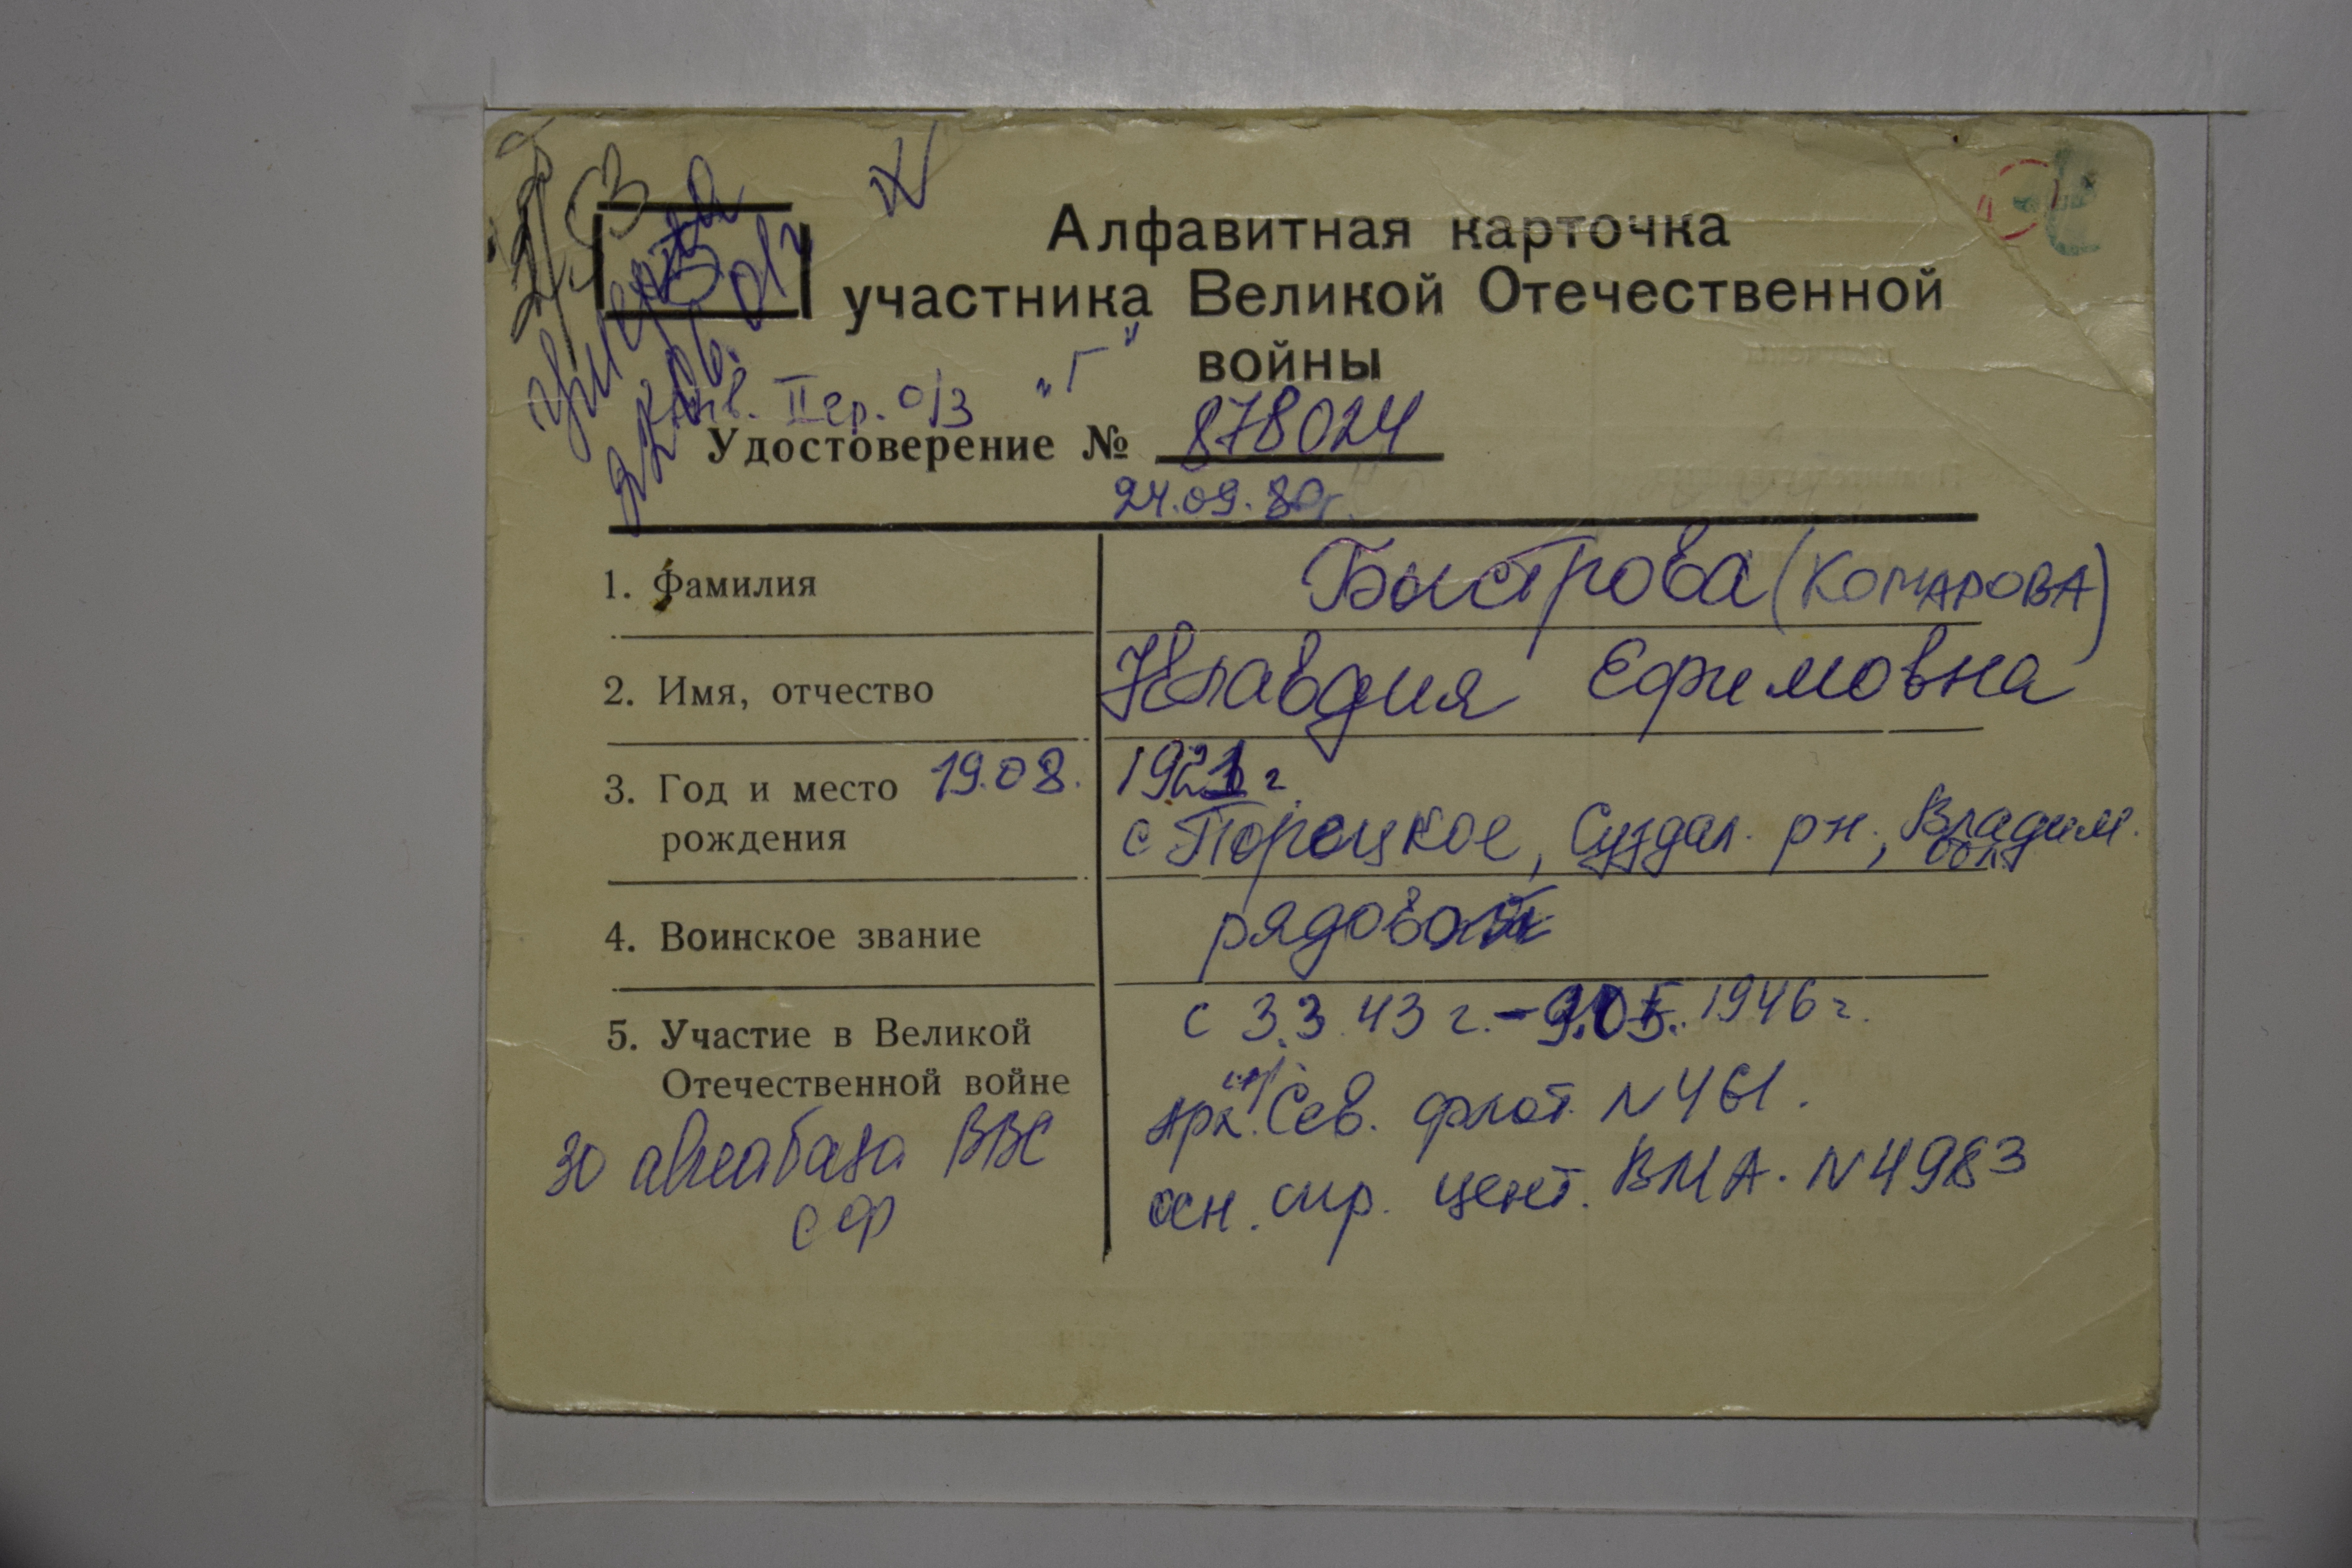 Алфавитная карточка
участника Великой Отечественной
войны
„Г"
Инв. II гр. о/з
Удостоверение № 878024
24.09.80г.
1. Фамилия Быстрова (КОМАРОВА)
2. Имя, отчество Клавдия Ефимовна
3. Год и место 19.08. 1921 г.
рождения с Порецкое, Суздал. рн., Владим. обл.
4. Воинское звание рядовой
5. Участие в Великой с 3.3.43 г. - 1946 г.
Отечественной войне
арх. Сев. флот. N 461.
30 авиабаза ВВС
осн. цент. ВМА. N 4983
СФ